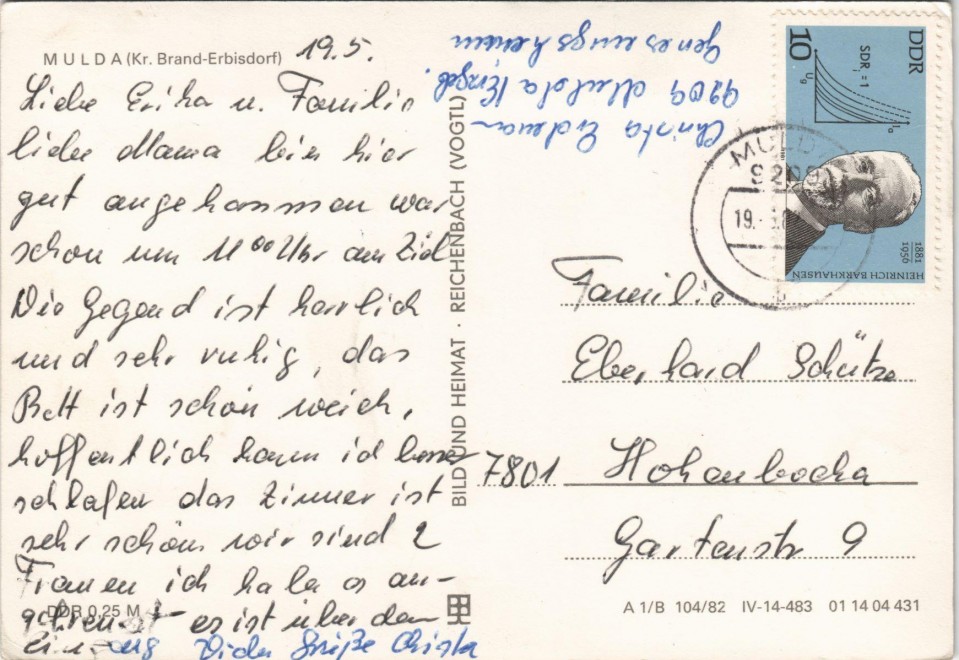 MULDA (Kr. Brand-Erbisdorf) 19.5.
Liebe Erika u. Familie
liebe Mama bin hier
gut angekommen war
schon um 11 00 Uhr am Ziel
Die Gegend ist herrlich
und sehr ruhig, das
Bett ist schön weich,
hoffentlich kann ich
schlafen das Zimmer ist
sehr schön wir sind 2
Frauen ich habe es an-
gekreuzt es ist über dem
Eingang Viele Grüße Christa
DDR 0,25 M
BILD UND HEIMAT · REICHENBACH (VOGTL)
Christa
9209 Mulda / Erzgeb.
Genesungsheim
DDR
10
SDRᵢ = 1
Ug
Ia
1881
1956
HEINRICH BARKHAUSEN
MULDA
9209
19.
Familie
Eberhard Schütze
7801 Hohenbocka
Gartenstr 9
A 1/B 104/82 IV-14-483 01 14 04 431